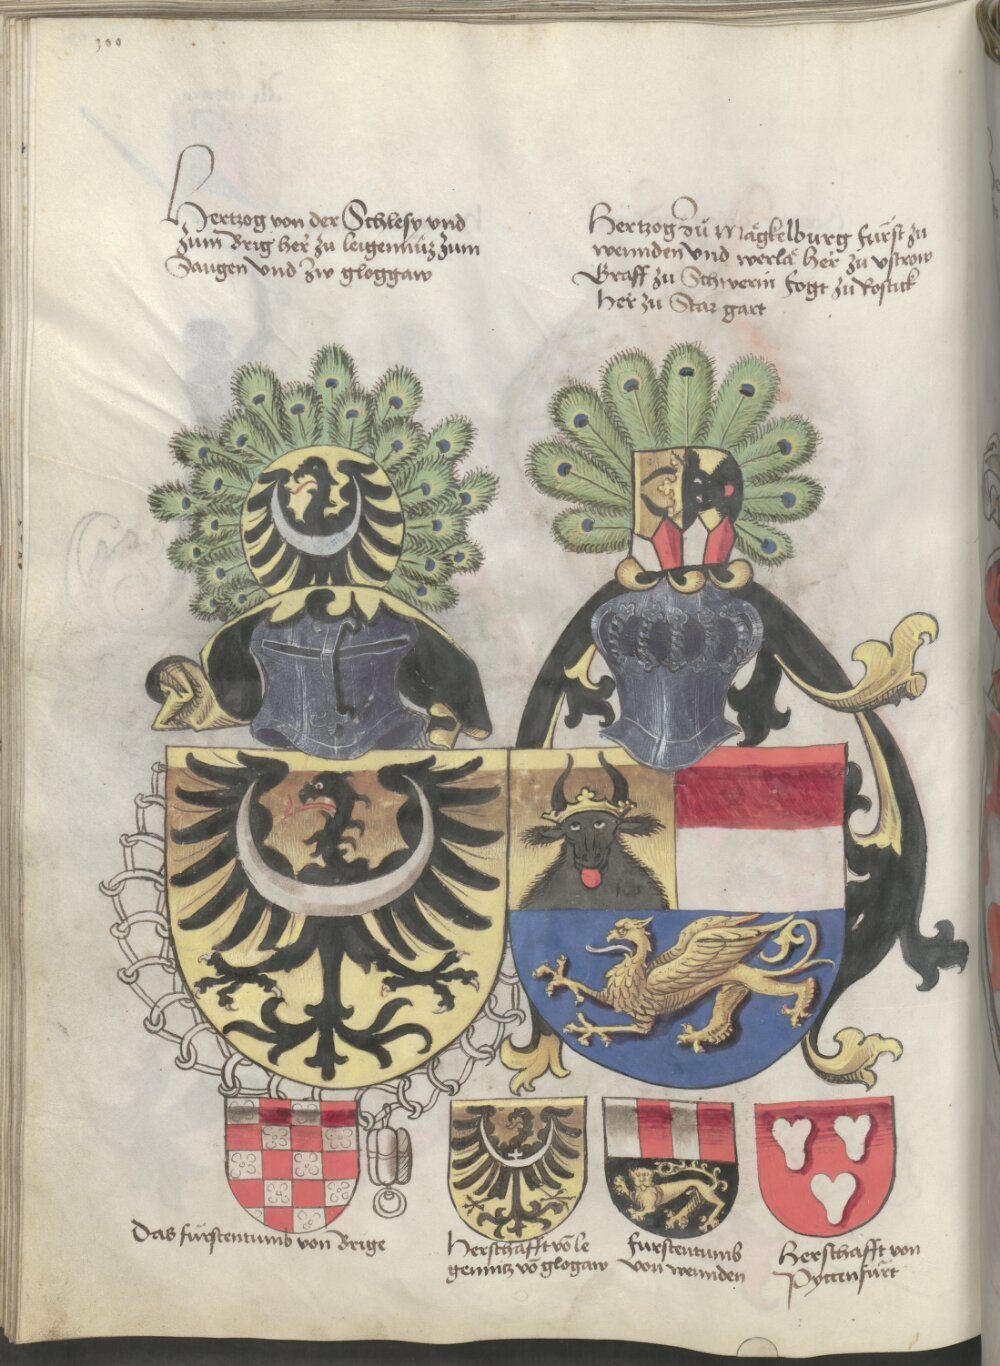 300
Hertzog von der Schlesy vnd
zum Brig her zu leigennitz zum
Saugen vnd zw gloggaw
Hertzog zu Mägkelburg fürst zu
wennden vnd werla her zu vstrow
Graff zu Schwerin fogt zu Rostick
Her zu Star gart
Das fürstentumb von Brige
Herschafft vō le
gennitz vō glogaw
fürstentumb
von wennden
Herschafft von
Pyttenfürt